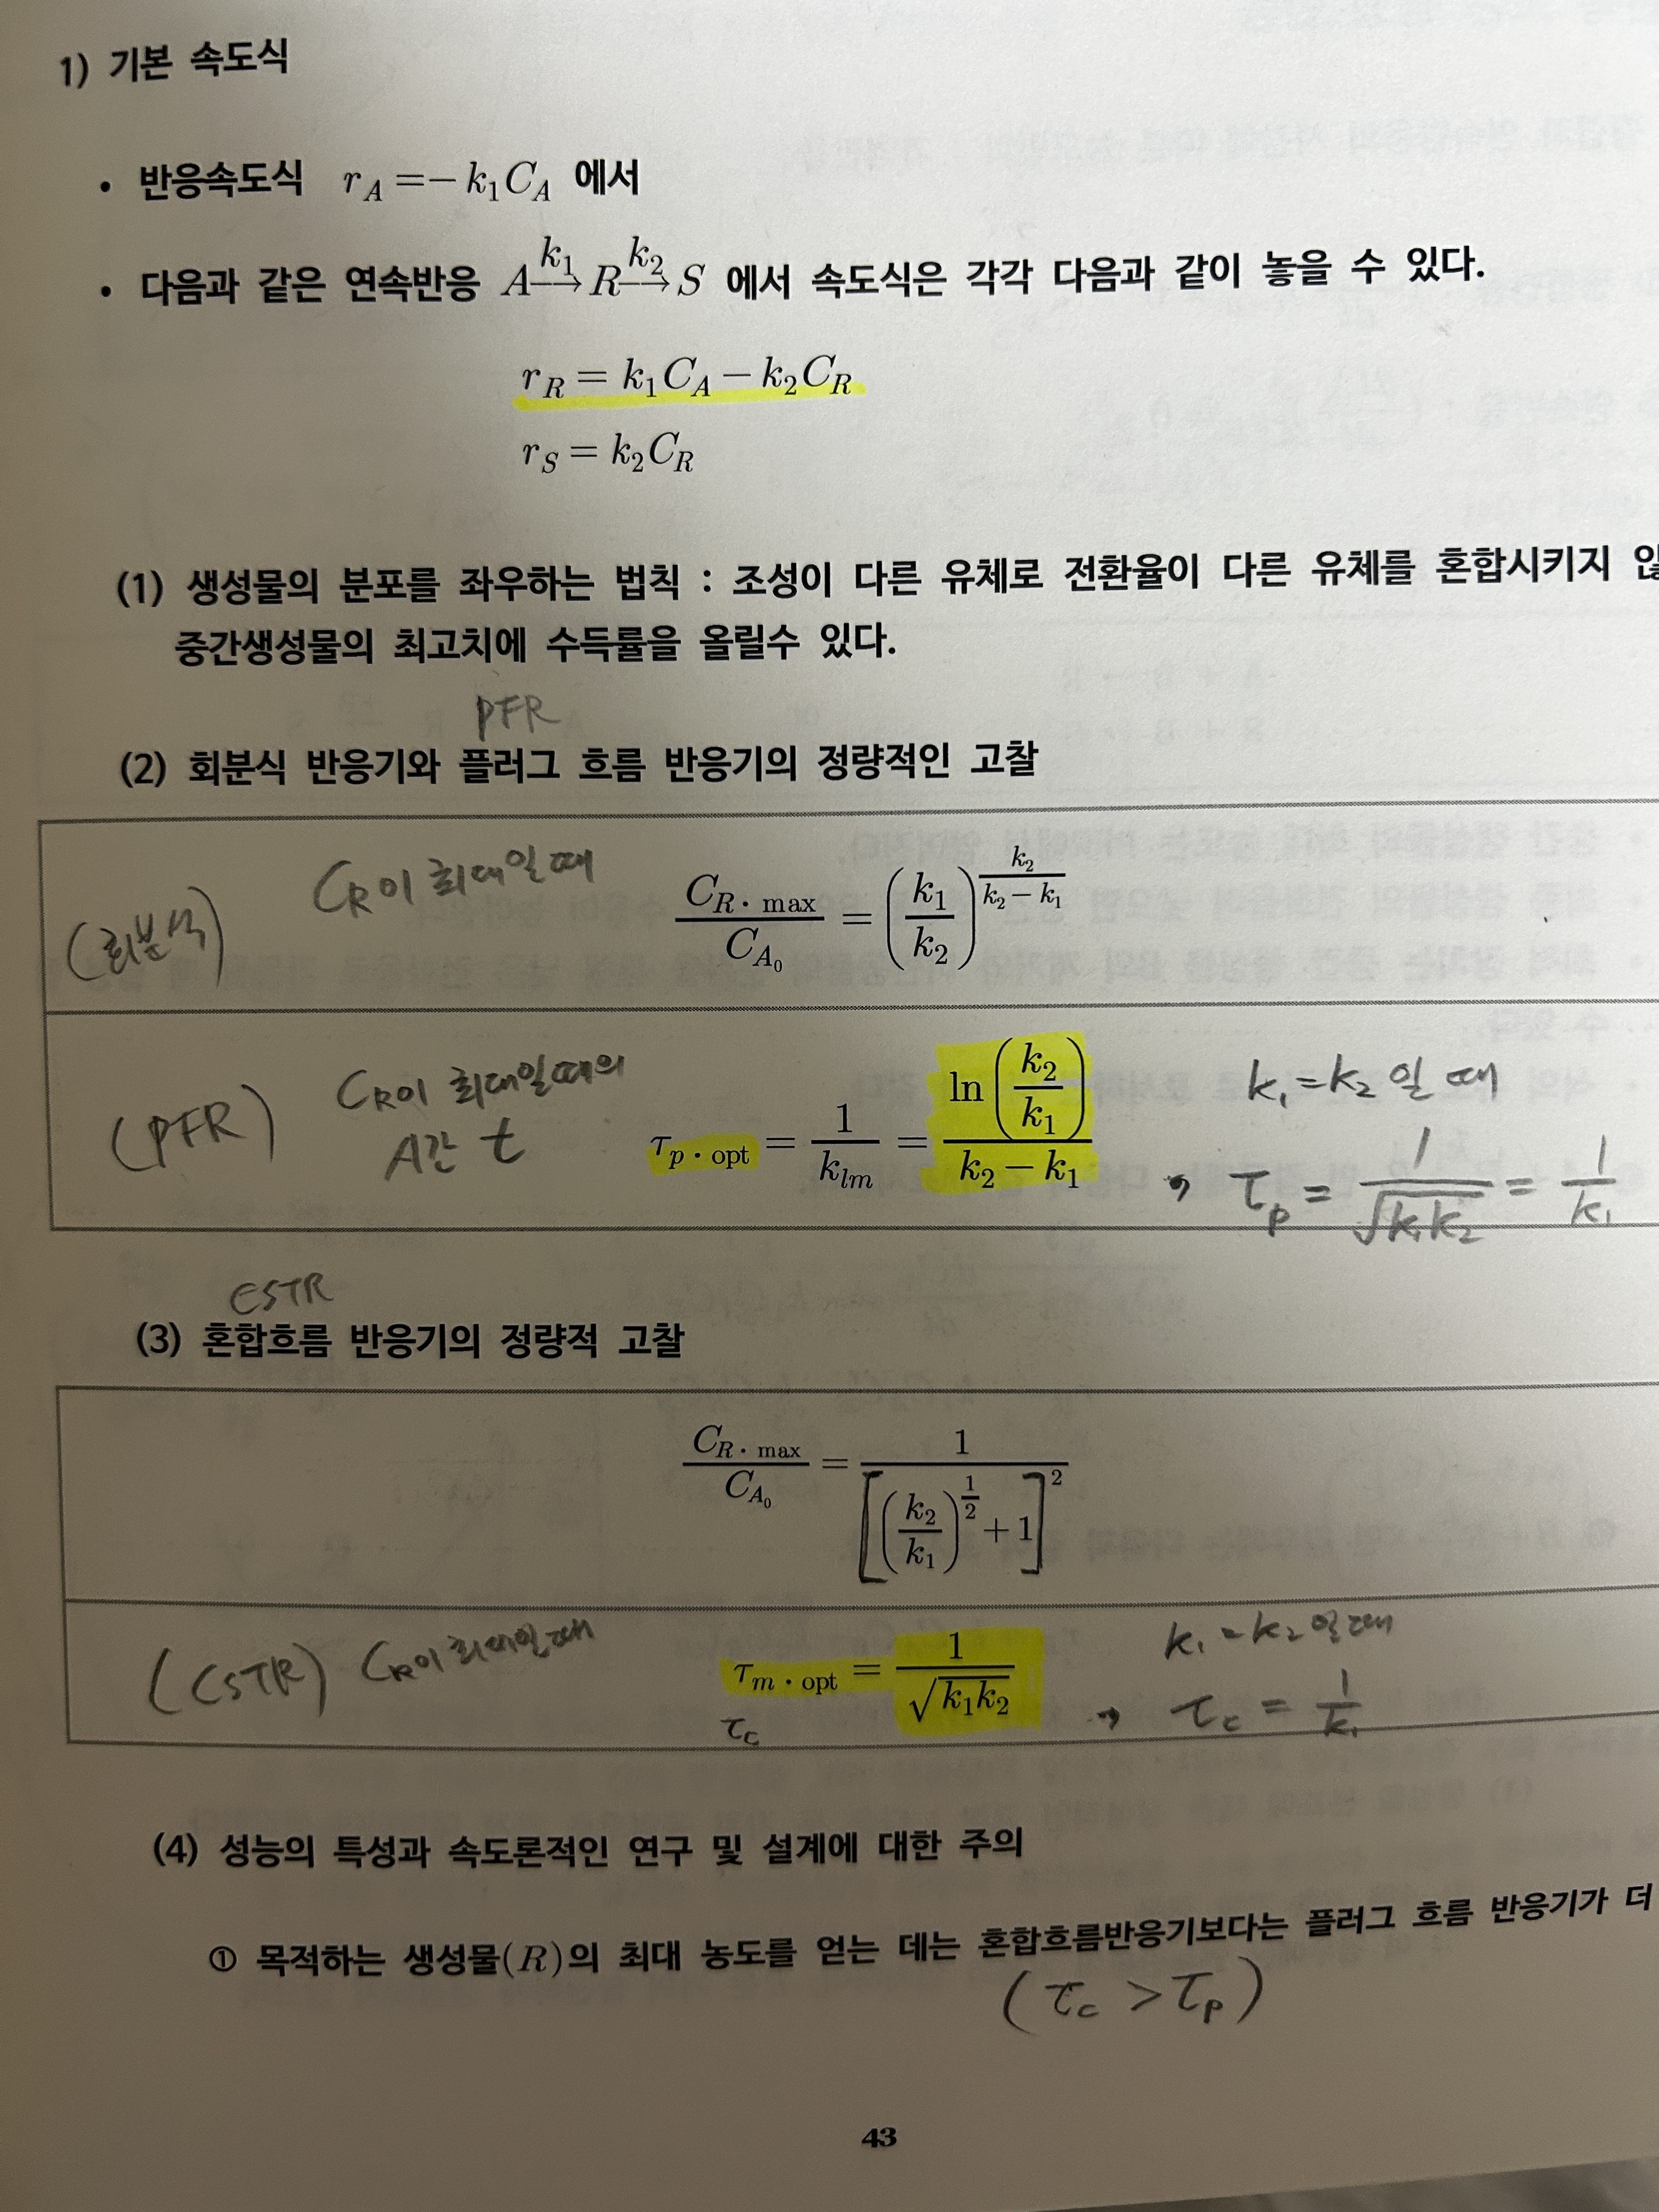 1) 기본 속도식
• 반응속도식 r_A = − k_1 C_A 에서
• 다음과 같은 연속반응 A \xrightarrow{k_1} R \xrightarrow{k_2} S 에서 속도식은 각각 다음과 같이 놓을 수 있다.
r_R = k_1 C_A − k_2 C_R
r_S = k_2 C_R
(1) 생성물의 분포를 좌우하는 법칙 : 조성이 다른 유체로 전환율이 다른 유체를 혼합시키지 않
중간생성물의 최고치에 수득률을 올릴수 있다.
PFR
(2) 회분식 반응기와 플러그 흐름 반응기의 정량적인 고찰
(회분식) C_R이 최대일 때 \frac{C_{R· max}}{C_{A_0}} = \left(\frac{k_1}{k_2}\right)^{\frac{k_2}{k_2 − k_1}}
(PFR) C_R이 최대일때의 τ_{p · opt} = \frac{1}{k_{lm}} = \frac{\ln\left(\frac{k_2}{k_1}\right)}{k_2 − k_1} k_1 = k_2 일 때
t → τ_p = \frac{1}{\sqrt{k_1 k_2}} = \frac{1}{k_1}
CSTR
(3) 혼합흐름 반응기의 정량적 고찰
\frac{C_{R· max}}{C_{A_0}} = \frac{1}{\left[\left(\frac{k_2}{k_1}\right)^{\frac{1}{2}} + 1\right]^2}
(CSTR) C_R이 최대일때 τ_{m · opt} = \frac{1}{\sqrt{k_1 k_2}} k_1 = k_2 일때
τ_c → τ_c = \frac{1}{k_1}
(4) 성능의 특성과 속도론적인 연구 및 설계에 대한 주의
① 목적하는 생성물(R)의 최대 농도를 얻는 데는 혼합흐름반응기보다는 플러그 흐름 반응기가 더
(τ_c > τ_p)
43